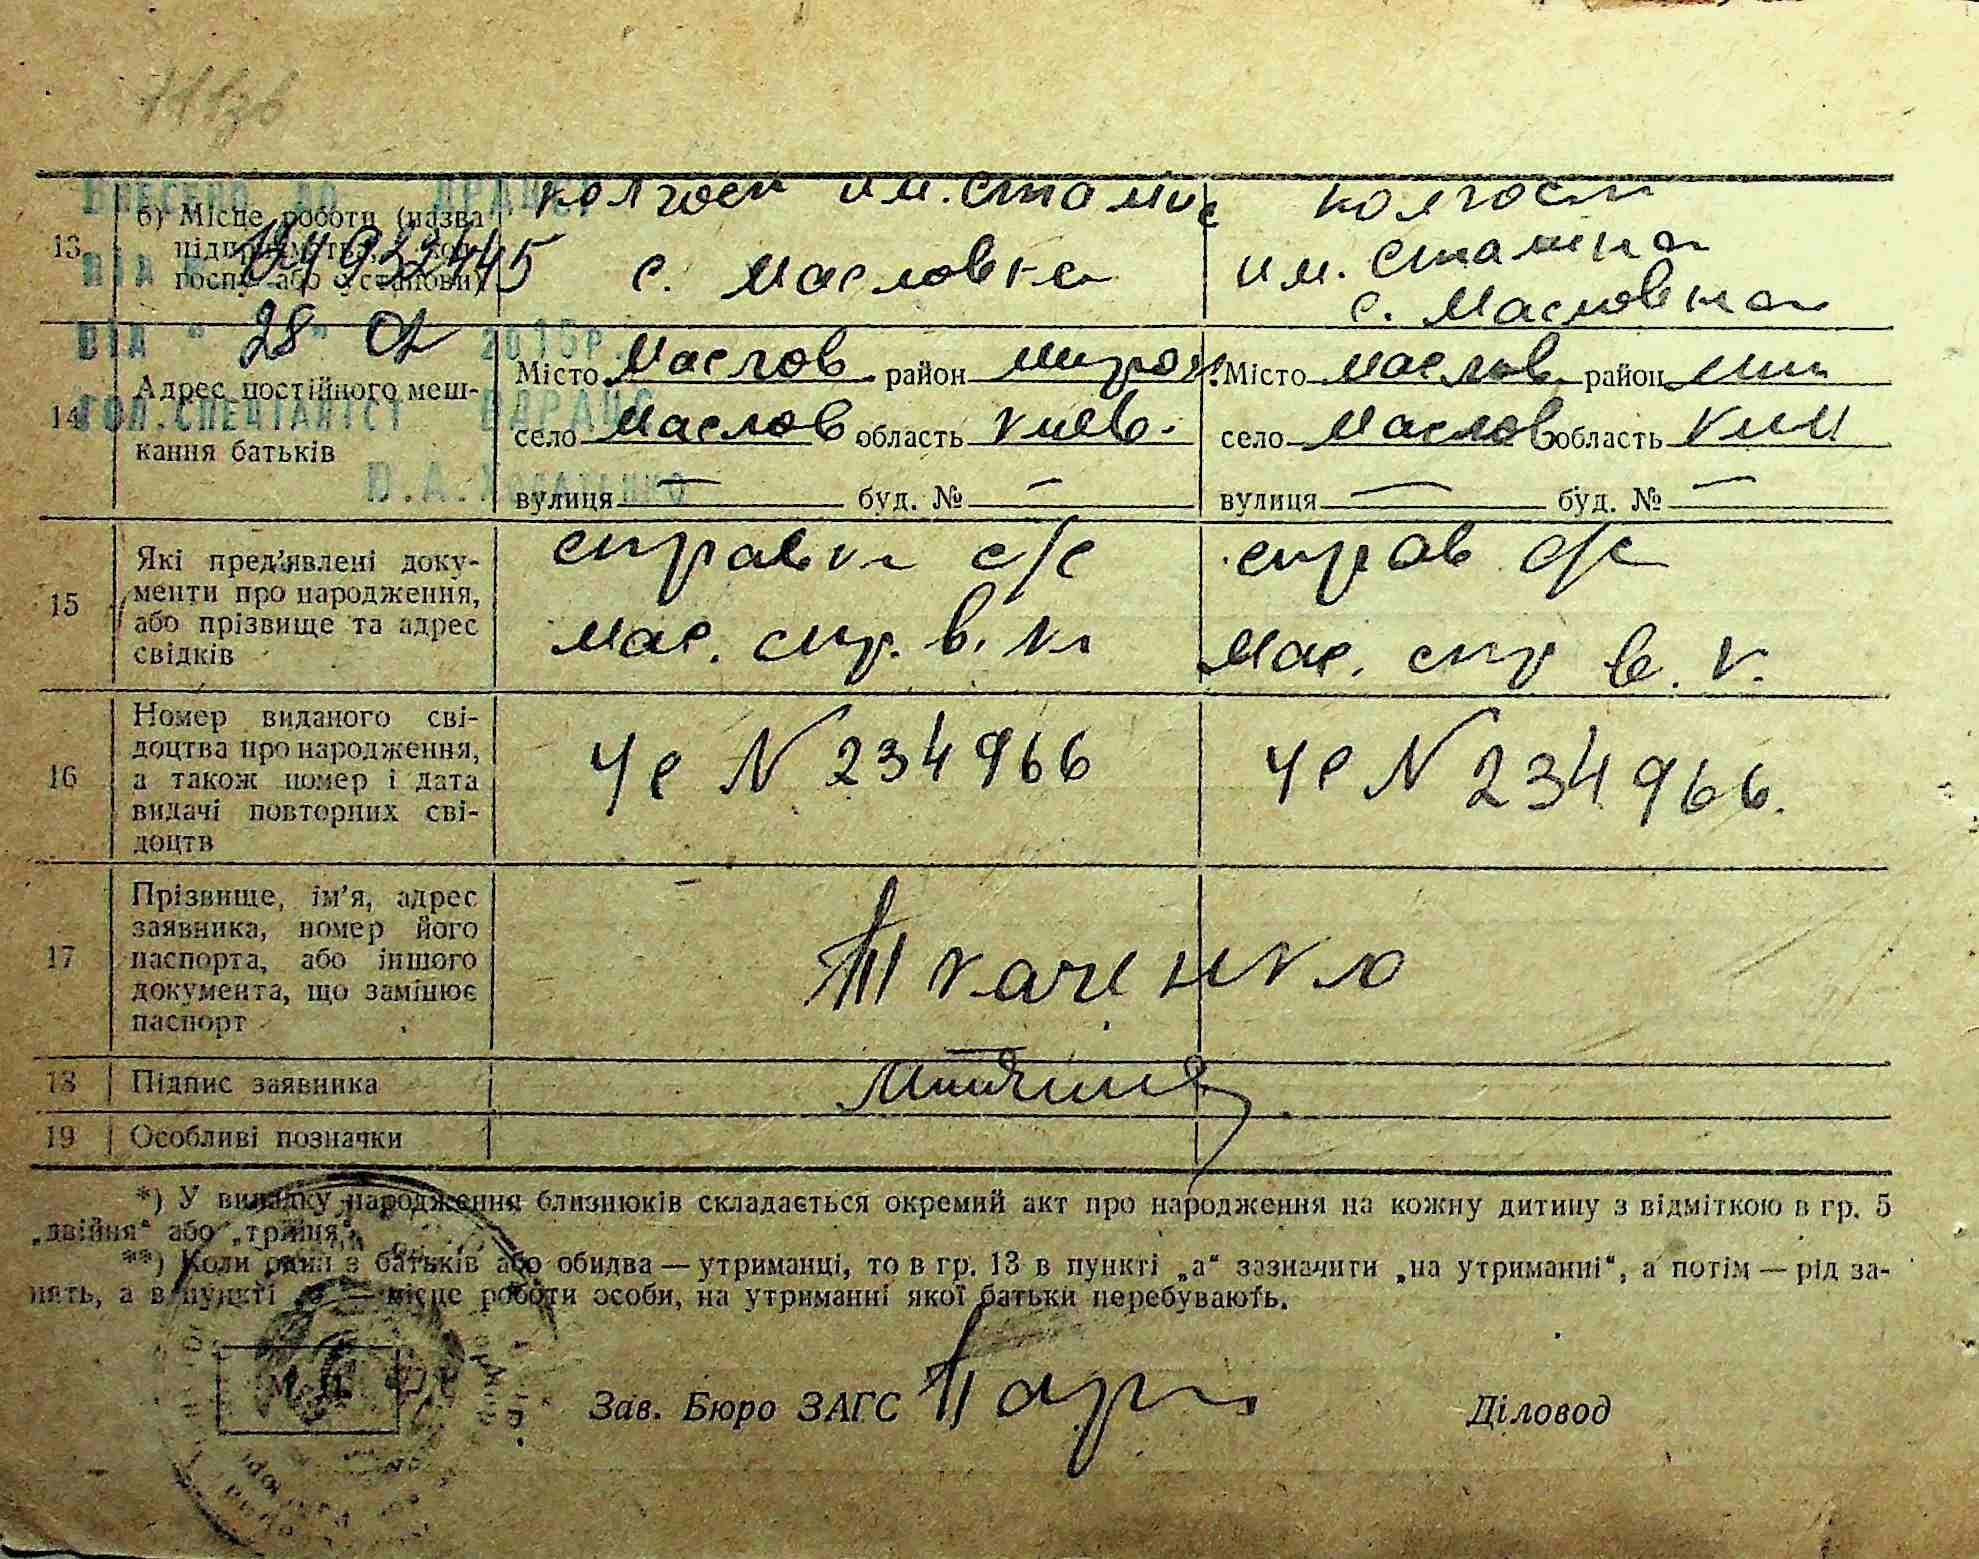 ВНЕСЕНО ДО ДРАЦСГ
ВІД "28" 02 2015р.
ГОЛ.СПЕЦІАЛІСТ ВДРАЦС
13 б) Місце роботи (назва підприємства, колгоспу або установи)
колгосп им. Сталина
с. Масловка
колгосп
им. Сталина
с. Масловка
14 Адрес постійного мешкання батьків
Місто Маслов район Мирон. Місто Маслов район
село Маслов область Киев. село Маслов область
вулиця — буд. № — вулиця — буд. № —
15 Які пред'явлені документи про народження, або прізвище та адрес свідків
справки с/с
мас. спр. в. к
справ с/с
мас. спр в. к.
16 Номер виданого свідоцтва про народження, а також номер і дата видачі повторних свідоцтв
ЧС N 234966
ЧС N 234966.
17 Прізвище, ім'я, адрес заявника, номер його паспорта, або іншого документа, що замінює паспорт
Ткаченко
18 Підпис заявника
19 Особливі позначки
*) У випадку народження близнюків складається окремий акт про народження на кожну дитину з відміткою в гр. 5
„двійня“ або „трійня“.
**) Коли один з батьків або обидва — утриманці, то в гр. 13 в пункті „а“ зазначити „на утриманні“, а потім — рід за-
нять, а в пункті „б“ — місце роботи особи, на утриманні якої батьки перебувають.
М. П.
Зав. Бюро ЗАГС
Діловод